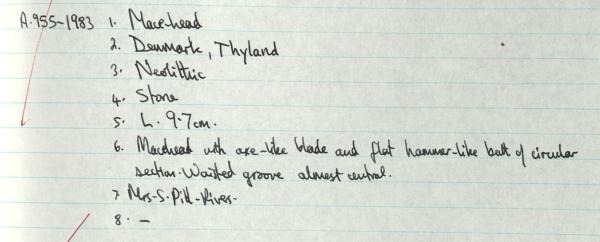 A.955-1983 1. Mace-head
2. Denmark, Thyland
3. Neolithic
4. Stone
5. L. 9.7cm.
6. Macehead with axe-like blade and flat hammer-like butt of circular
section. Waisted groove almost central.
7. Mrs. S. Pitt-Rivers.
8. —